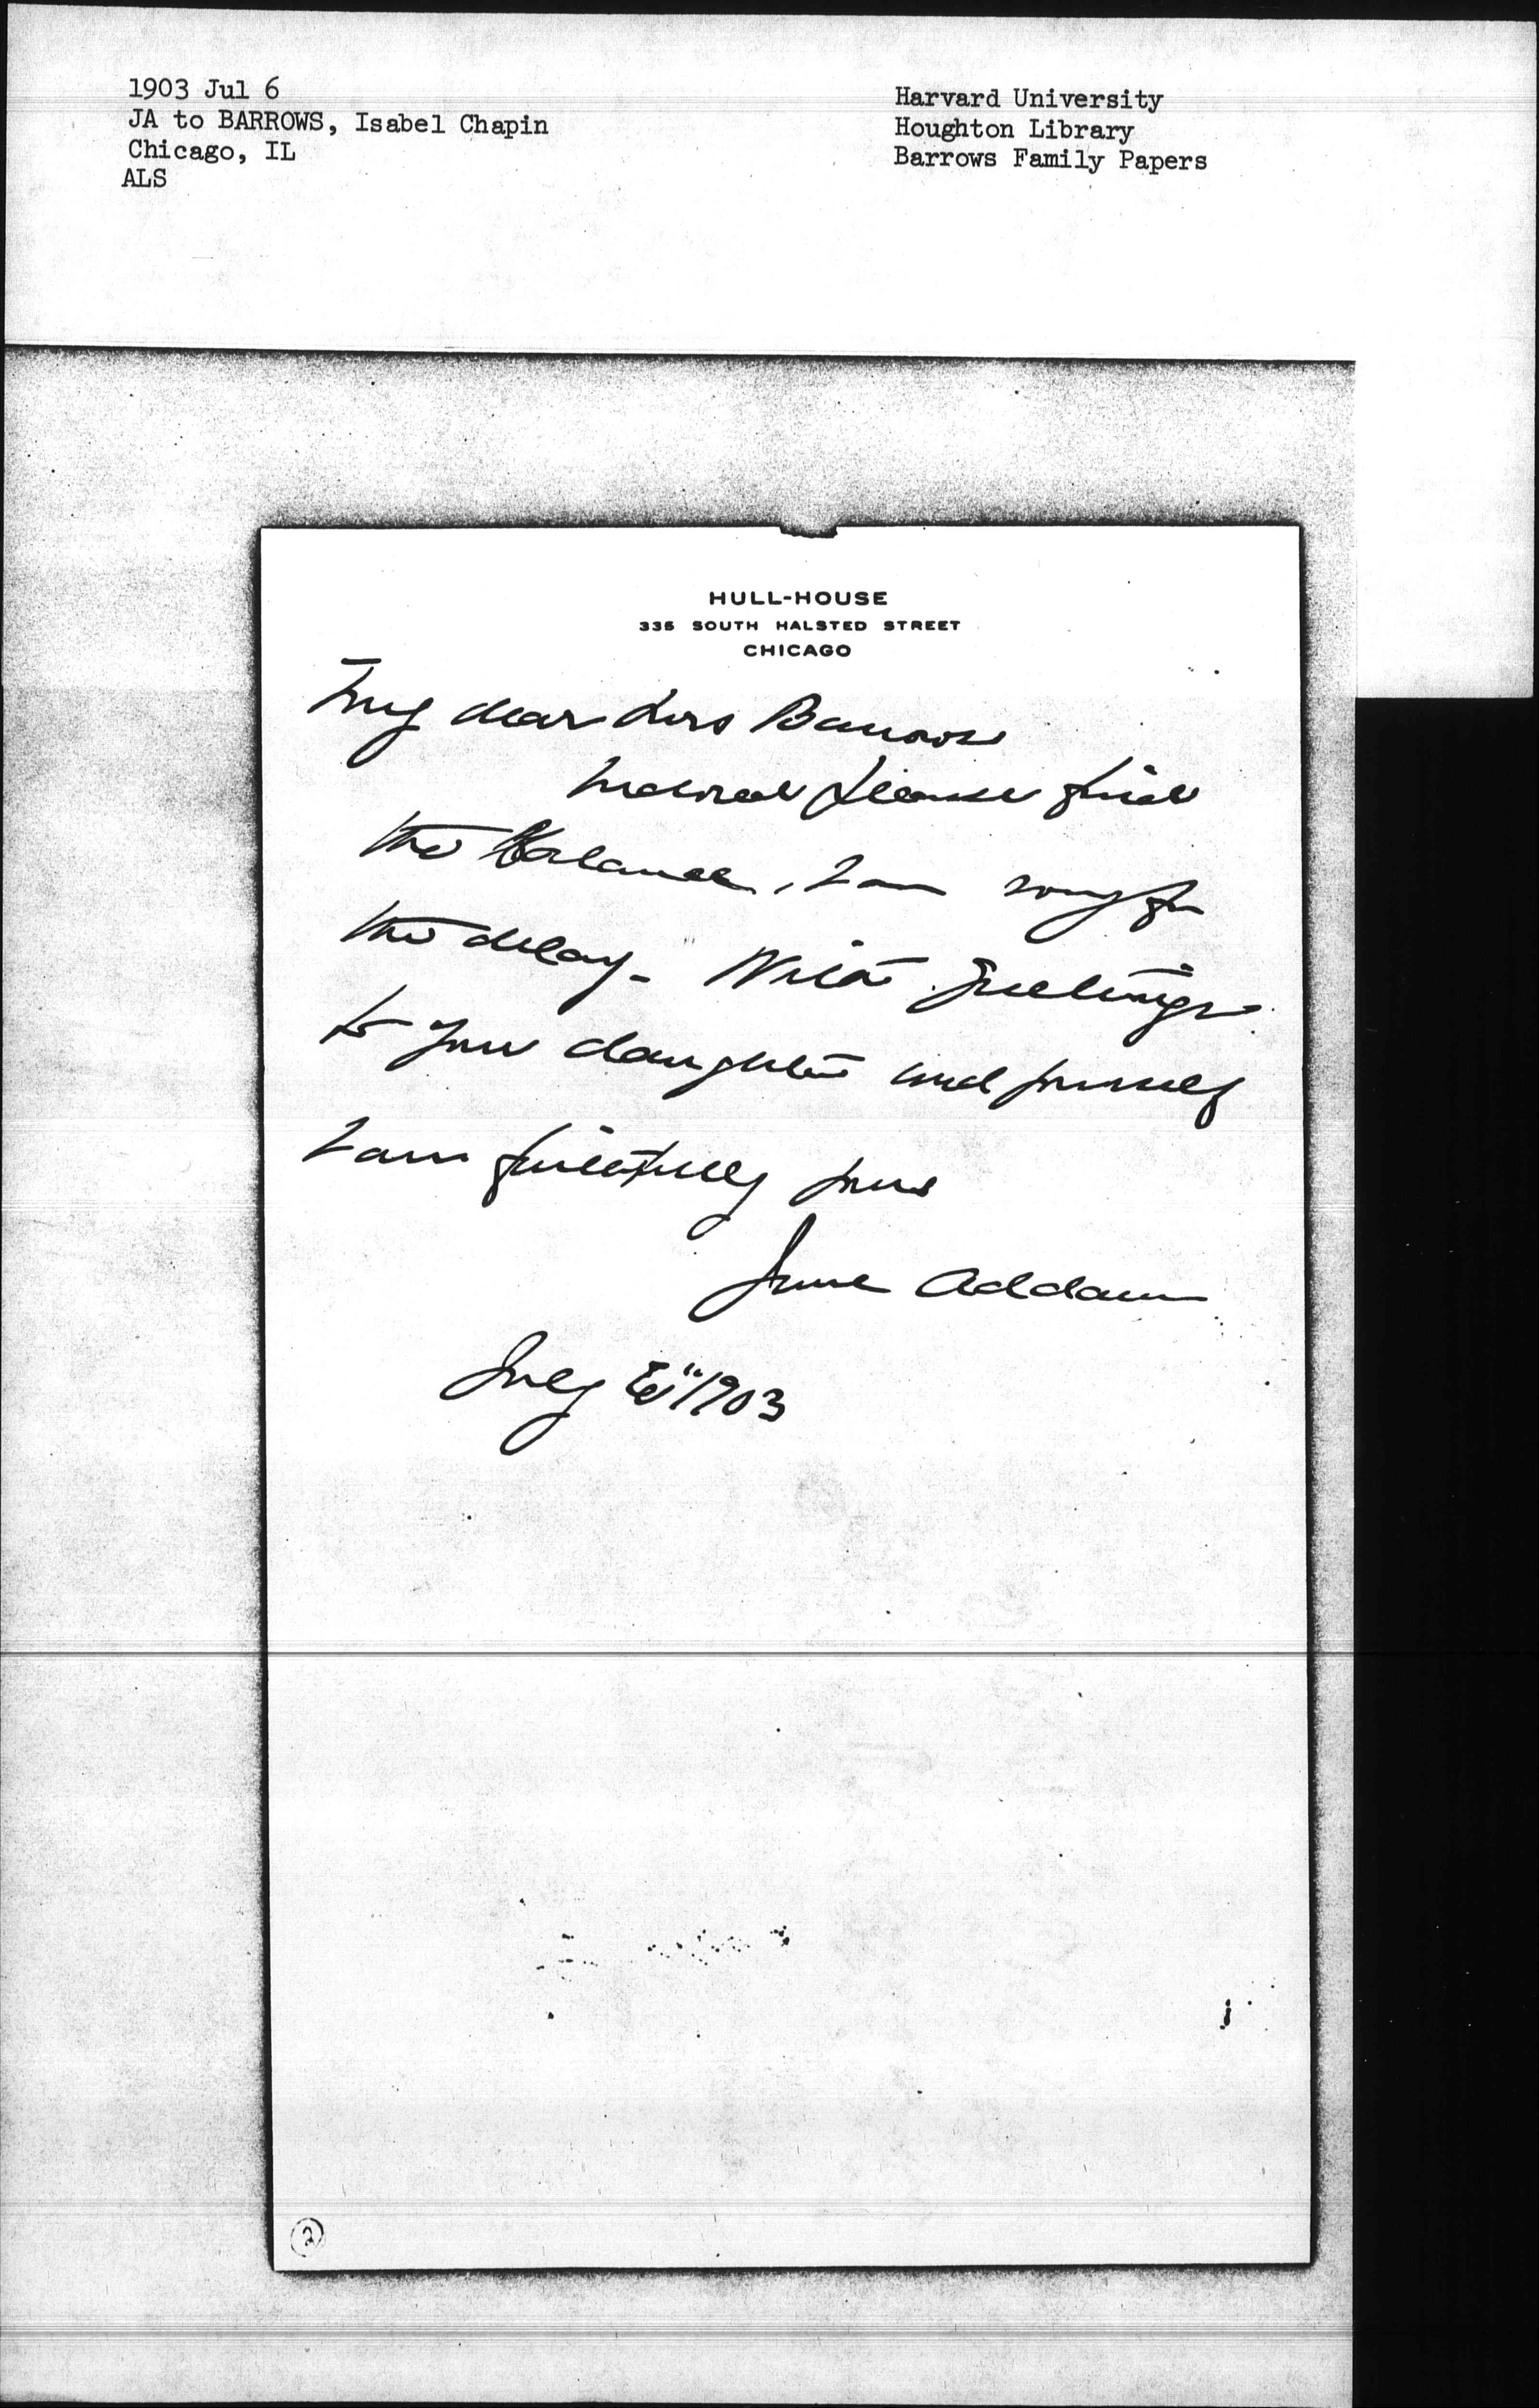 1903 Jul 6
JA to BARROWS, Isabel Chapin
Chicago, IL
ALS
Harvard University
Houghton Library
Barrows Family Papers
HULL-HOUSE
335 SOUTH HALSTED STREET
CHICAGO
My dear Mrs Barrows
Inclosed please find
the balance, I am sorry for
the delay - With greetings
to your daughter and yourself
I am faithfully yours
Jane Addams
July 6" 1903
2